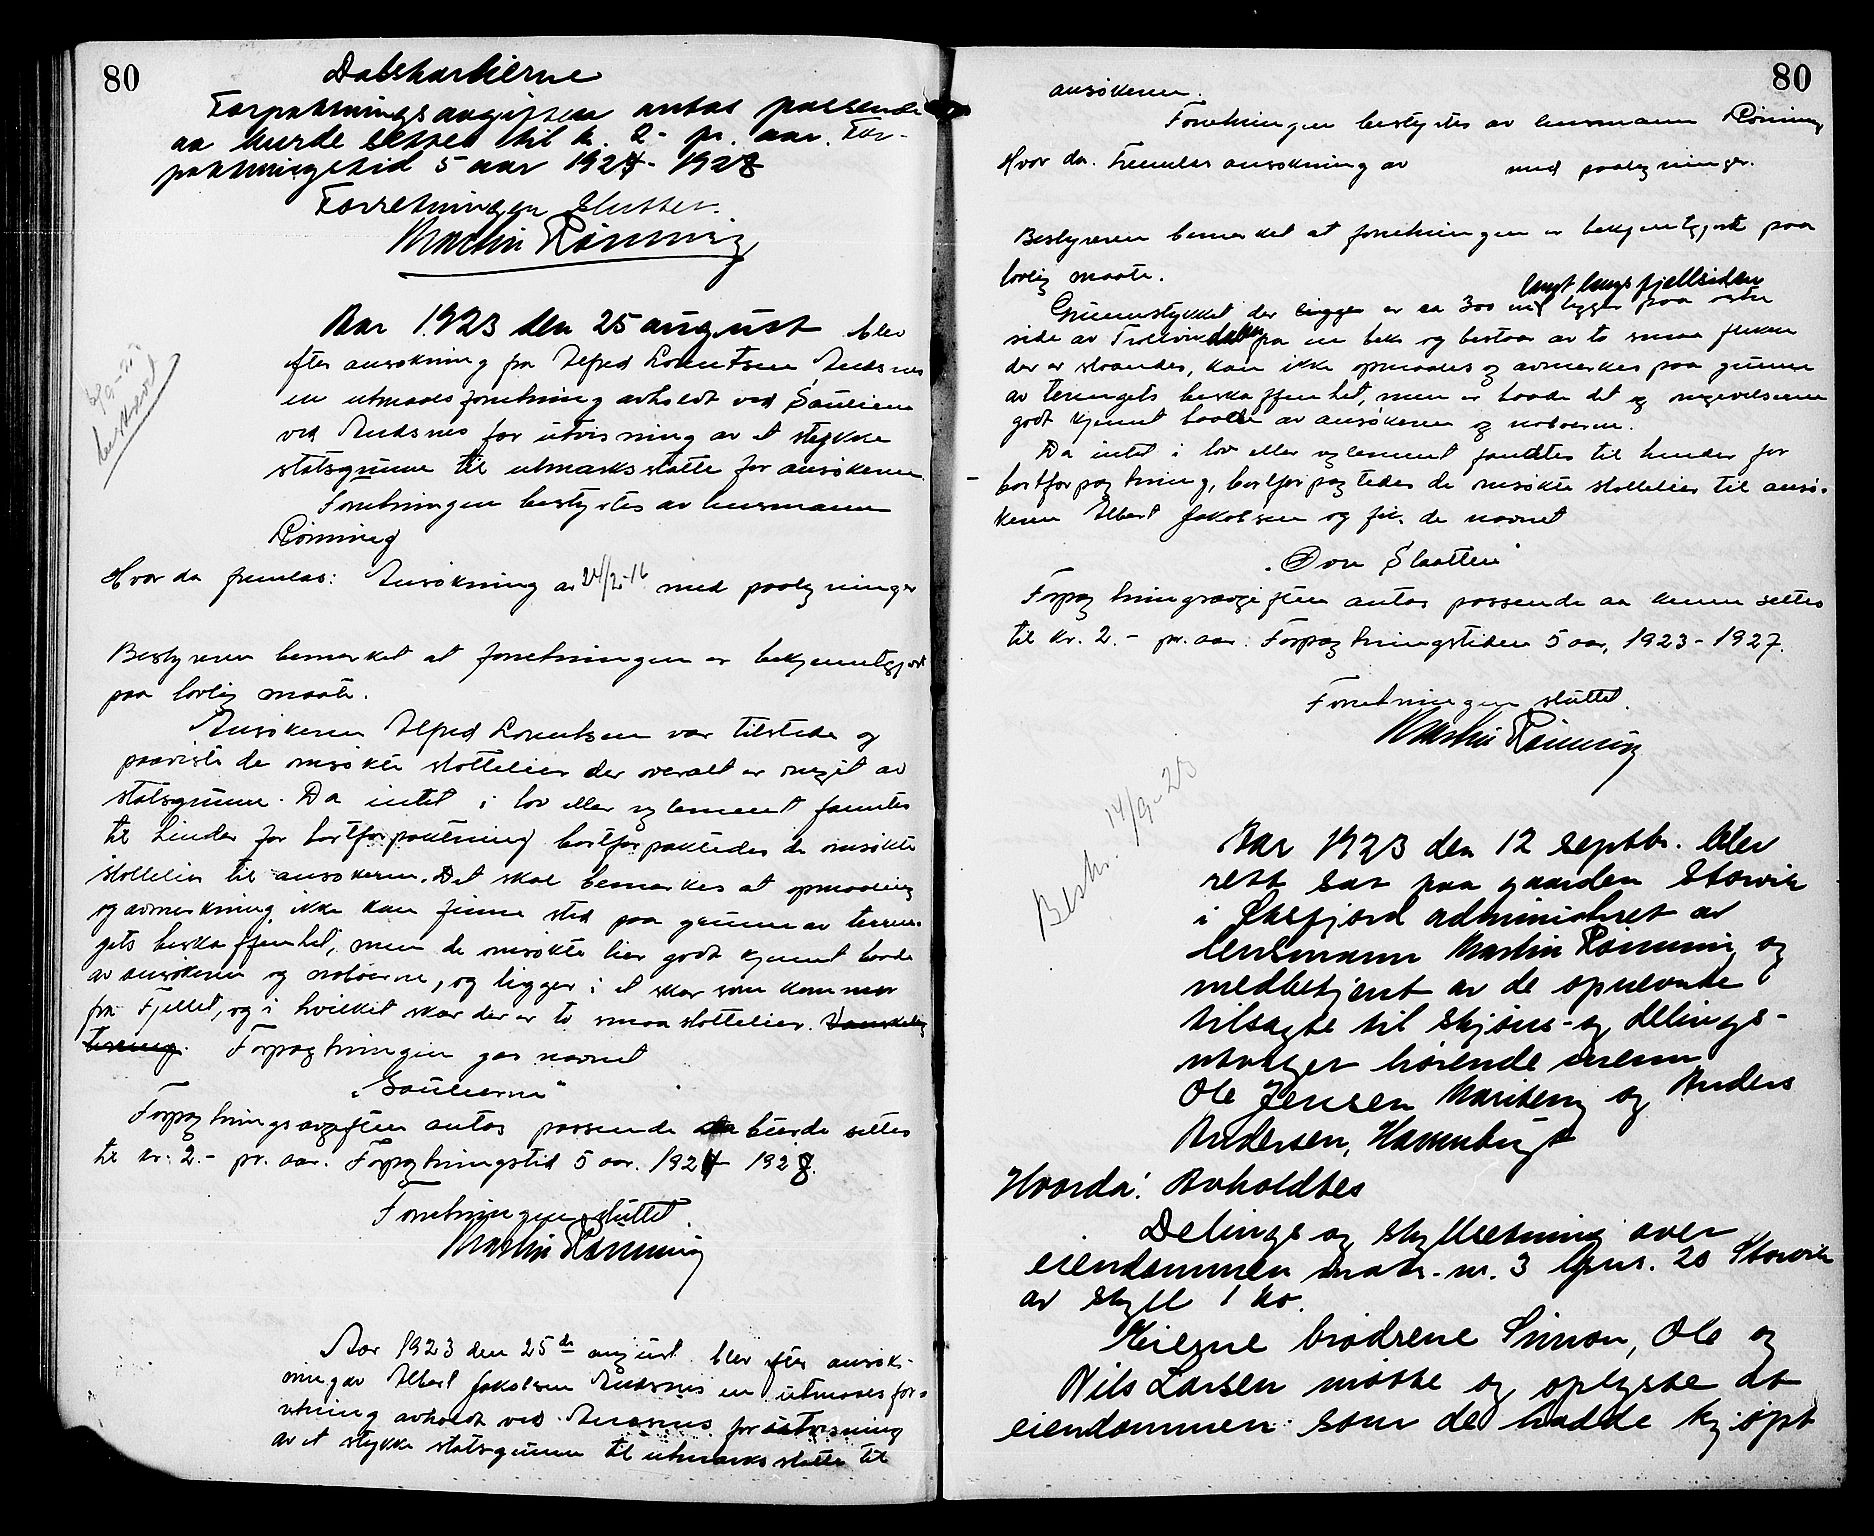 80
Dalsbakkerne
Forpaktningsavgiften antas passende
aa burde settes til kr. 2- pr. aar. For-
paktningstid 5 aar 1923- 1927
Forretningen sluttet.
Martin Rönning
Aar 1923 den 25 august blev
efter ansökning fra Alfred Lorentsen, Andsnes
en utmaalsforretning avholdt ved Sauliene
ved Andsnes for utvisning av et stykke
statsgrunn til utmarksslatte for ansökeren.
Forretningen bestyrtes av lensmann
Rönning
Hvor da fremlas: Ansökning av 24/2-16 med paategninger
Bestyreren bemerket at forretningen er bekjentgjort
paa lovlig maate.
Ansökeren Alfred Lorentsen var tilstede og
paaviste de ansökte slottelier der overalt er omgit av
statsgrunn. Da intet i lov eller reglement fanntes
til hinder for bortforpaktning bortforpaktedes de ansökte
slottelier til ansökeren. Det skal bemerkes at opmaaling
og avmerkning ikke kan finne sted paa grunn av terren-
gets beskaffenhet, men de ansökte lier godt kjennt baade
av ansökeren og naboerne, og ligger i et skar som kommer
fra Fjellet, og i hvilket skar der er to smaa slottelier.
Forpagtningen gas navnet
"Saulierne"
Forpagtningsavgiften antas passende burde settes
til kr. 2.- pr. aar. Forpagtningstid 5 aar. 192 - 192
Forretningen sluttet.
Martin Rönning
Aar 1923 den 25de august blev efter ansök-
ning av Albert Jakobsen Andsnes en utmaalsfor-
retning avholdt ved Andsnes for utvisning
av et stykke statsgrunn til utmarksslatte til
80
ansökeren.
Forretningen bestyrtes av lensmann Rönning
Hvor da. Fremlas ansökning av med paategninger.
Bestyreren bemerket at forretningen er bekjentgjort paa
lovlig maate.
langs fjellsiden
Grunnstykket der ligger er ca 300 m ligger paa östre
side av fra en bek og bestaar av to smaa flekker
der er skraanende, kan ikke opmaales og avmerkes paa grunn
av terrengets beskaffenhet, men er baade det og omgivelserne
godt kjennt baade av ansökeren og naboerne.
Da intet i lov eller reglement fandtes til hinder for
bortforpagtning, bortforpagtedes de ansökte slottelier til ansö-
keren Albert Jakobsen og fik de navnet
"Övre Slaatten"
Forpagtningsavgiften antas passende aa kunne settes
til kr. 2.- pr. aar. Forpagtningstiden 5 aar, 1923-1927.
Forretningen sluttet.
Martin Rönning
Beskr. 14/9-23
Aar 1923 den 12 septbr. blev
rett sat paa gaarden Storvik
i Öksfjord administret av
lensmann Martin Rönning og
medbetjent av de opnevnte
tilsagte til skjöns- og delings-
utvalget hörende menn
Ole Jensen og Anders
Andersen,
Hvorda: Avholdtes
Delings og skyllsetning over
eiendommen matr. nr. 3 Gnr. 20 Storvik
av skyll 1 kr.
Eierne brödrene Simon, Ole og
Nils Larsen mötte og oplyste at
eiendommen som de hadde kjöpt